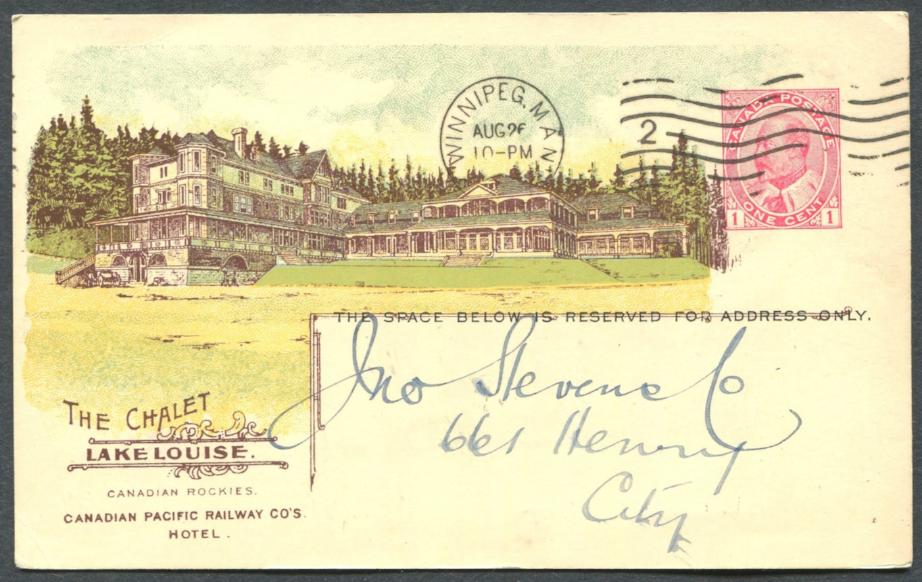 WINNIPEG, MAN
AUG 26
10-PM
2
CANADA POSTAGE
1 ONE CENT 1
THE SPACE BELOW IS RESERVED FOR ADDRESS ONLY.
Jno Stevens Co
661 Henry
City
THE CHALET
LAKE LOUISE.
CANADIAN ROCKIES.
CANADIAN PACIFIC RAILWAY CO'S.
HOTEL.